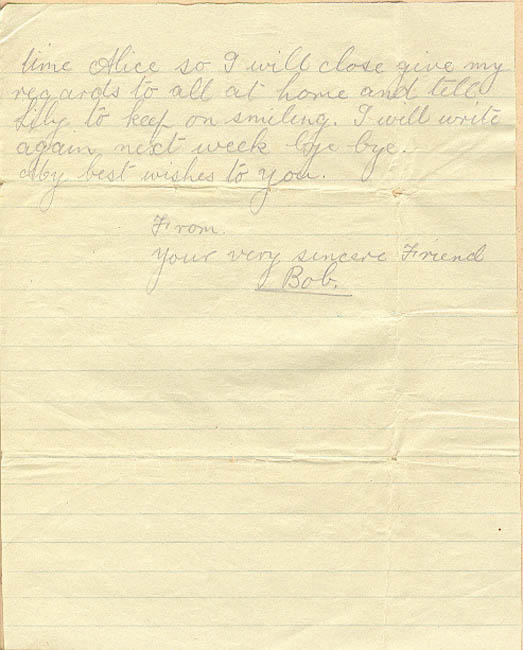 time Alice so I will close give my
regards to all at home and tell
Lily to keep on smiling. I will write
again next week bye bye.
My best wishes to you.
From.
Your very sincere Friend
Bob.